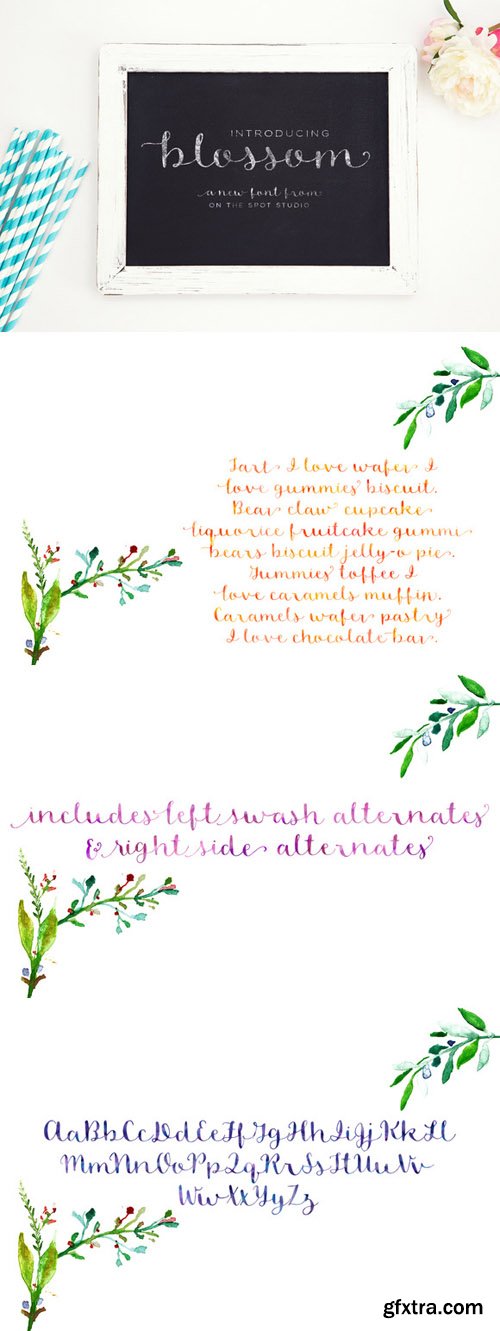 INTRODUCING
blossom
a new font from
ON THE SPOT STUDIO
Tart I love wafer I
love gummies biscuit.
Bear claw cupcake
liquorice fruitcake gummi
bears biscuit jelly-o pie.
Gummies toffee I
love caramels muffin.
Caramels wafer pastry
I love chocolate bar.
includes left swash alternates
& right side alternates
AaBbCcDdEeFfGgHhIiJjKkLl
MmNnOoPpQqRrSsTtUuVv
WwXxYyZz
gfxtra.com